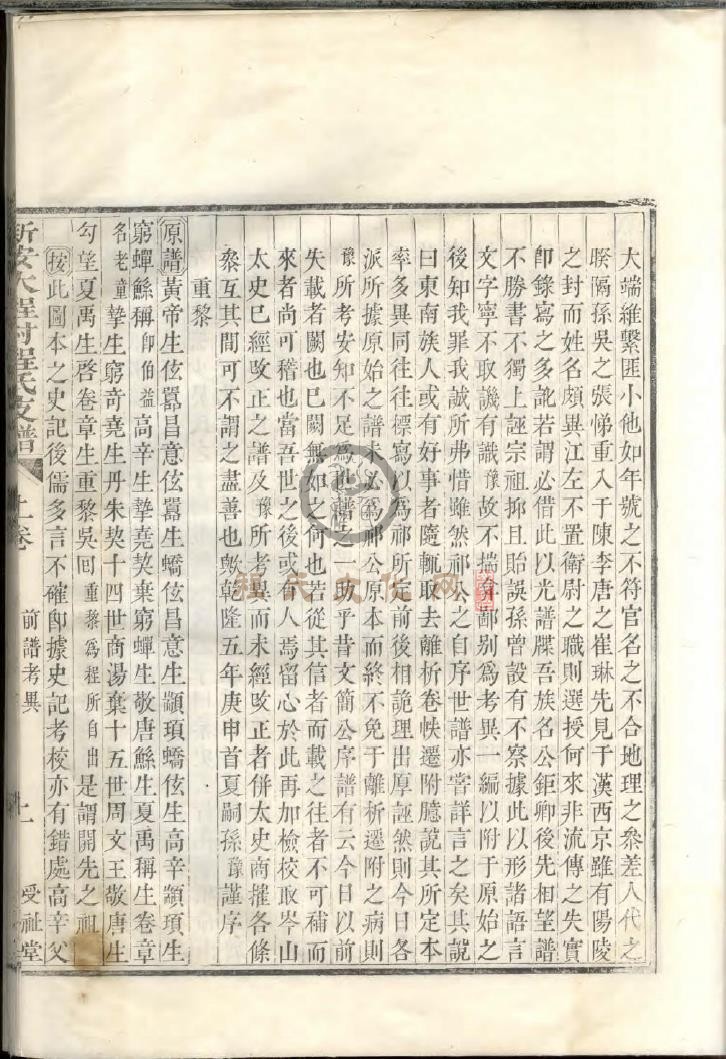 大端維繫匪小他如年號之不符官名之不合地理之叅差人代之
暌隔孫吳之張悌重入于陳李唐之崔琳先見于漢西京雖有陽陵
之封而姓名頗異江左不置衛尉之職則選授何來非流傳之失實
卽錄寫之多訛若謂必借此以光譜牒吾族名公鉅卿後先相望譜
不勝書不獨上誣宗祖抑且貽誤孫曾設有不察據此以形諸語言
文字寧不取譏有識豫故不揣鄙別爲考異一編以附于原始之
後知我罪我誠所弗惜雖然祁公之自序世譜亦嘗詳言之矣其說
曰東南族人或有好事者隨輒取去離析卷帙遷附臆說其所定本
率多異同往往摽寫以爲祁所定前後相詭理出厚誣然則今日各
派所據原始之譜未必爲祁公原本而終不免于離析遷附之病則
豫所考安知不足爲世譜之一助乎昔文簡公序譜有云今日以前
失載者闕也已闕無如之何也若從其信者而載之往者不可補而
來者尚可稽也當吾世之後或人焉留心於此再加檢校取岑山
太史已經攺正之譜及豫所考異而未經攺正者併太史商搉各條
叅互其間可不謂之盡善也歟乾隆五年庚申首夏嗣孫豫謹序
重黎
原譜黃帝生伭囂昌意伭囂生蟜伭昌意生顓頊蟜伭生高辛顓頊生
窮蟬鯀稱卽伯益高辛生摯堯契棄窮蟬生敬唐鯀生夏禹稱生卷章
名老童摯生窮竒堯生丹朱契十四世商湯棄十五世周文王敬唐生
勾望夏禹生啓卷章生重黎吳回重黎爲程所自出是謂開先之祖
按此圖本之史記後儒多言不確卽據史記考校亦有錯處高辛父
新安大程村程氏支譜 上卷 前譜考異 上一 受祉堂
程氏文化网